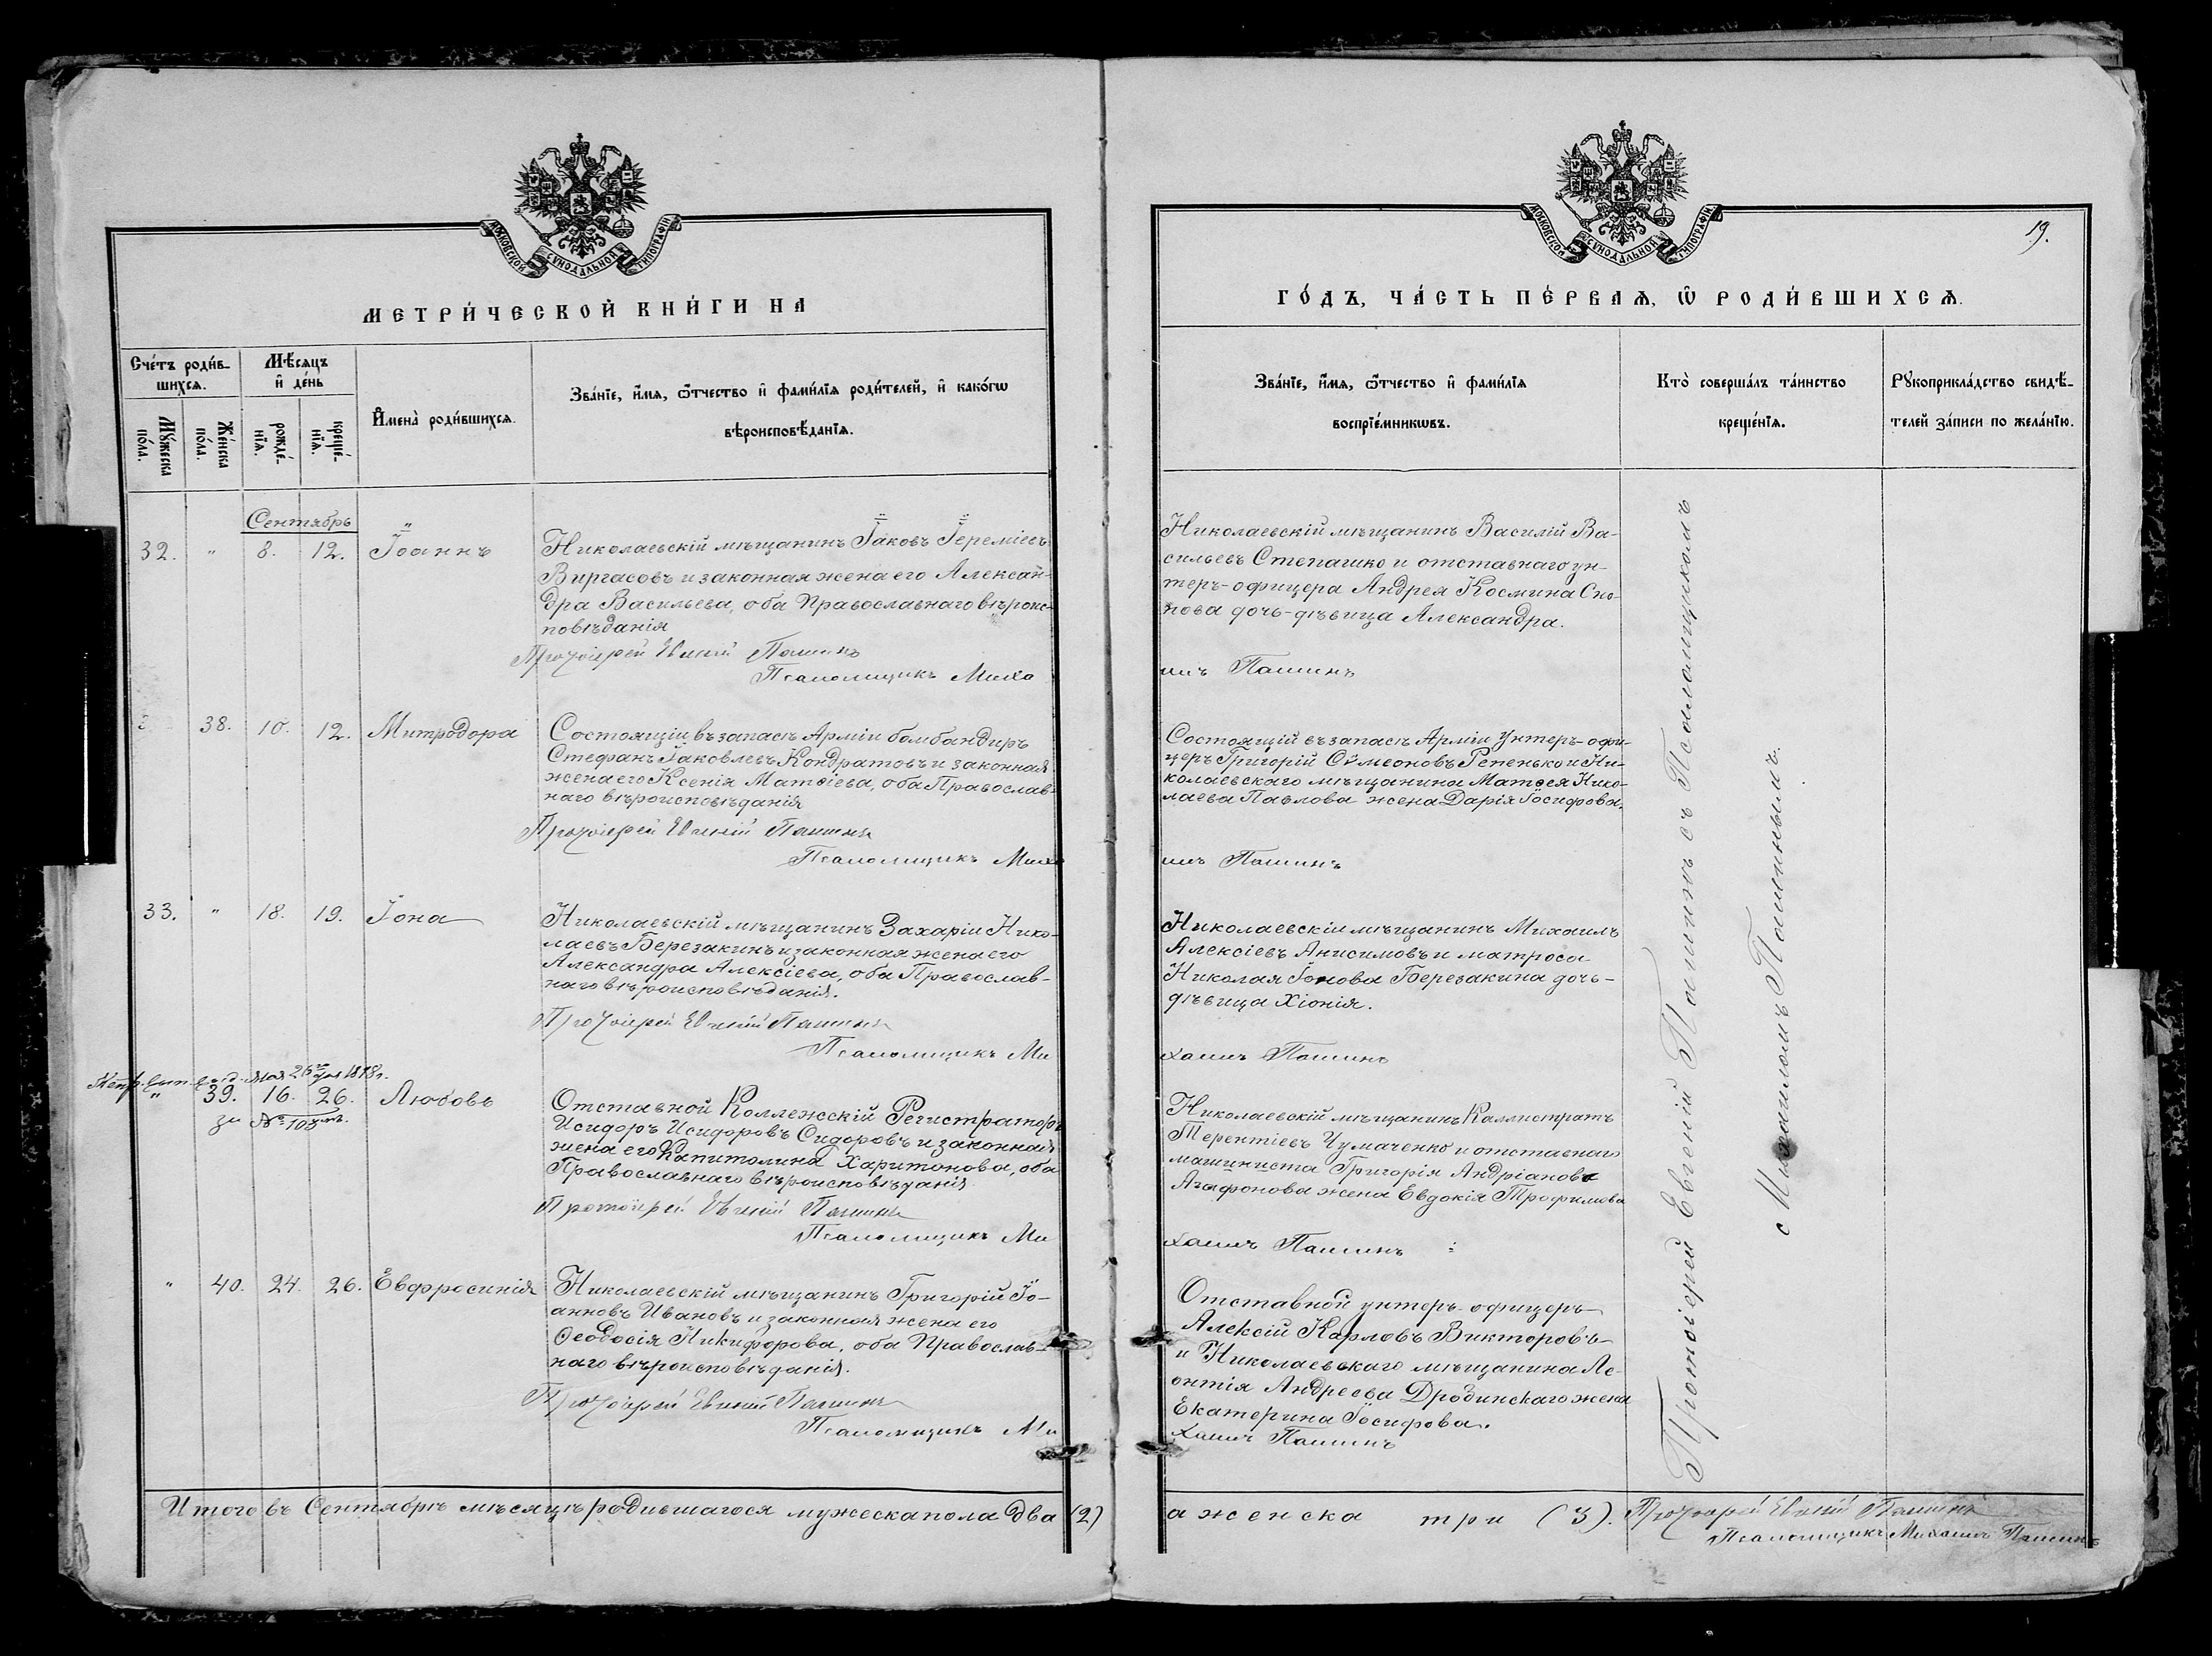 МОСКОВСКОЙ СѴНОДАЛЬНОЙ ТИПОГРАФІИ.
МЕТРИ́ЧЕСКОЙ КНИ́ГИ НА
Сче́тъ роди́в-
шихсѧ.
Мѣ́сѧцъ
и҆ де́нь
И҆мена̀ роди́вшихсѧ.
Зва́нїе, и҆́мѧ, ѻ҆́тчество и҆ фами́лїѧ роди́телей, и҆ како́гѡ
вѣроисповѣ́данїѧ.
Мꙋ́жеска
по́ла.
Же́нска
по́ла.
рожде́-
нїѧ.
креще́-
нїѧ.
Сентябрь
32. " 8. 12. Іоаннъ
Николаевскій мѣщанинъ Іаковъ Іереміевъ
Виргасовъ и законная жена его Алексан-
дра Васильева, оба Православнаго вѣроис-
повѣданія
Протоіерей Евгеній Пашинъ
Псаломщикъ Миха
38. 10. 12. Митродора
Состоящій въ запасѣ Арміи бомбандиръ
Стефанъ Іаковлевъ Кондратовъ и законная
жена его Ксенія Матѳіева, оба Православ-
наго вѣроисповѣданія
Протоіерей Евгеній Пашинъ
Псаломщикъ Миха
33. " 18. 19. Іона
Николаевскій мѣщанинъ Захарій Нико-
лаевъ Березакинъ и законная жена его
Александра Алексіева, оба Православ-
наго вѣроисповѣданія.
Протоіерей Евгеній Пашинъ
Псаломщикъ Ми
Мая 26го дня 1878г.
" 39. 16. 26. Любовь
за № 108мъ.
Отставной Коллежскій Регистраторъ
Исидоръ Исидоровъ Сидоровъ и законная
жена его Капитолина Харитонова, оба
Православнаго вѣроисповѣданія
Протоіерей Евгеній Пашинъ
Псаломщикъ Ми
" 40. 24. 26. Евфросинія
Николаевскій мѣщанинъ Григорій Іо-
анновъ Ивановъ и законная жена его
Ѳеодосія Никифорова, оба Православ-
наго вѣроисповѣданія.
Протоіерей Евгеній Пашинъ
Псаломщикъ Ми
Итого въ Сентябрѣ мѣсяцѣ родившагося мужеска пола два (2)
МОСКОВСКОЙ СѴНОДАЛЬНОЙ ТИПОГРАФІИ.
19.
ГО́ДЪ, ЧА́СТЬ ПЕ́РВАѦ, Ѡ҆ РОДИ́ВШИХСѦ.
Зва́нїе, и҆́мѧ, ѻ҆́тчество и҆ фами́лїѧ
воспрїе́мникѡвъ.
Кто̀ соверша́лъ та́инство
креще́нїѧ.
Рꙋкоприкла́дство свидѣ́-
телей за́писи по жела́нїю.
Николаевскій мѣщанинъ Василій Ва-
сильевъ Степагико и отставнаго ун-
теръ-офицера Андрея Космина Сно-
нова дочь-дѣвица Александра.
илъ Пашинъ
Состоящій въ запасѣ Арміи Унтеръ-офи-
церъ Григорій Сѵмеоновъ Репенько и Ни-
колаевскаго мѣщанина Матѳея Нико-
лаева Павлова жена Дарія Іосифова.
илъ Пашинъ
Николаевскій мѣщанинъ Михаилъ
Алексіевъ Анисимовъ и матроса
Николая Іонова Березакина дочь-
дѣвица Хіонія.
хаилъ Пашинъ
Николаевскій мѣщанинъ Каллистратъ
Терентіевъ Чумаченко и отставнаго
машиниста Григорія Андріанова
Агафонова жена Евдокія Трофимова
хаилъ Пашинъ
Отставной унтеръ-офицеръ
Алексій Карловъ Викторовъ
и Николаевскаго мѣщанина Ле-
онтія Андреева Дробинскаго жена
Екатерина Іосифова.
хаилъ Пашинъ
Протоіерей Евгеній Пашинъ съ Псаломщикомъ
с Михаиломъ Пашинымъ.
а женска три (3).
Протоіерей Евгеній Пашинъ
Псаломщикъ Михаилъ Пашинъ